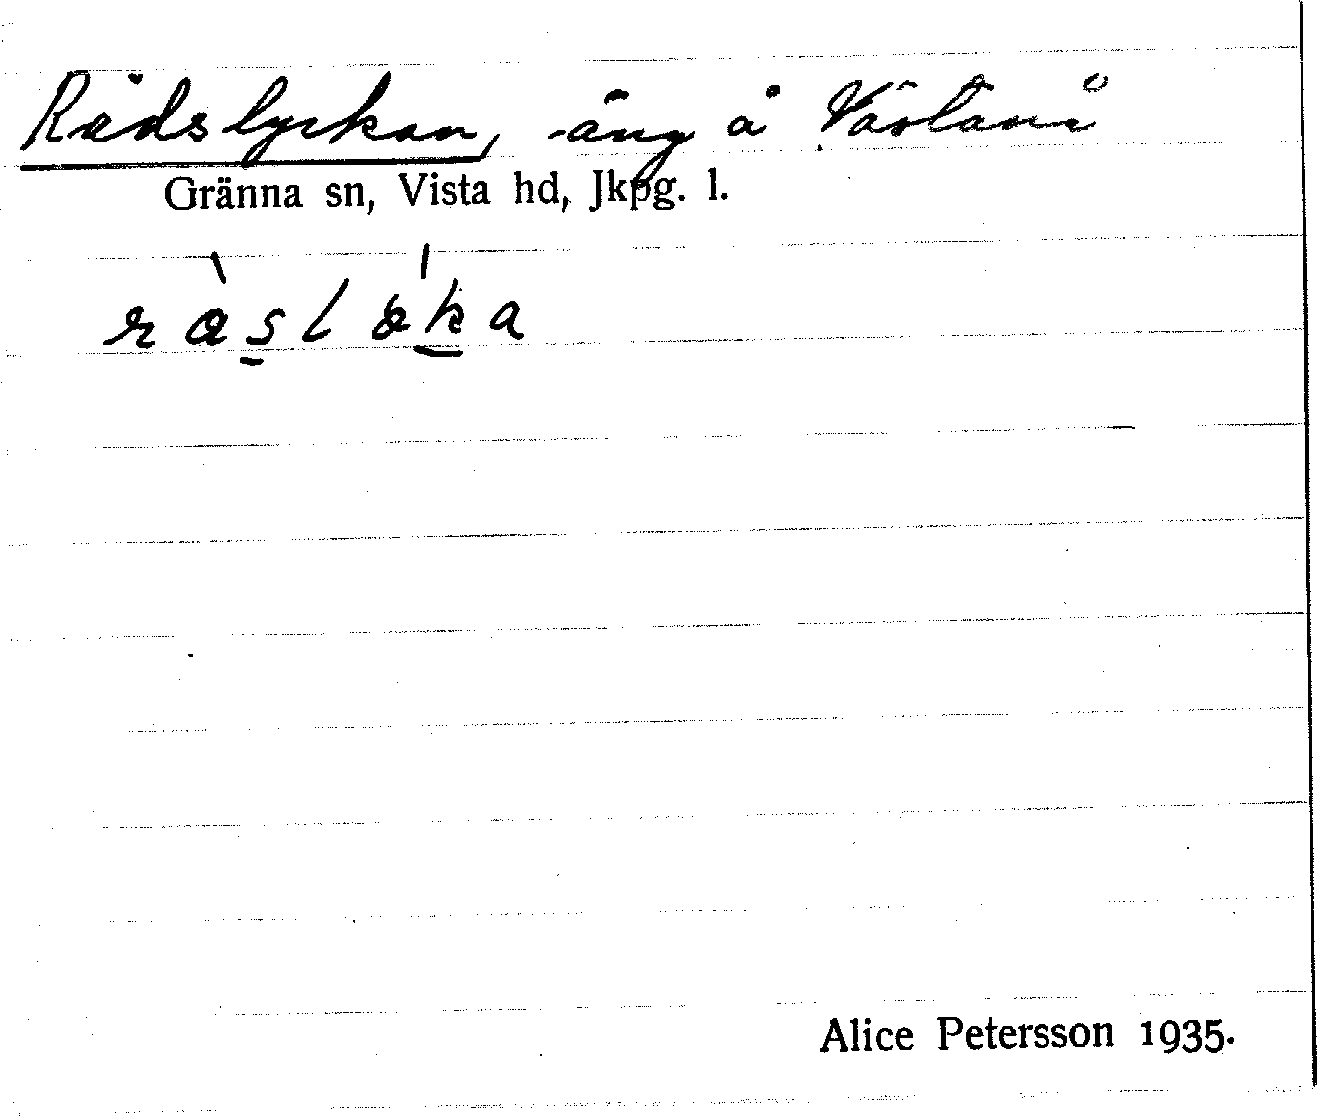 Rådslyckan, äng å Västanå
Gränna sn, Vista hd, Jkpg. l.
Alice Petersson 1935.